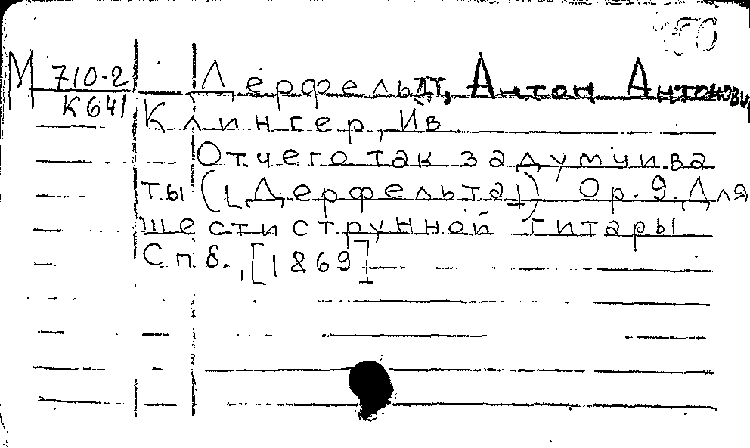 М 710-2 Дерфельдт, Антон Антонович
К 641
Клингер, Ив
Отчего так задумчива
ты ([Дерфельта]) Op. 9. Для
шестиструнной гитары
Спб., [1869]